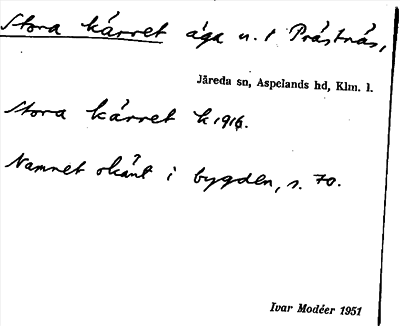 Stora kärret äga u. t Prästnäs,
Järeda sn, Aspelands hd, Klm. l.
Stora kärret k 1916.
Namnet okänt i bygden, s. 70.
Ivar Modéer 1951